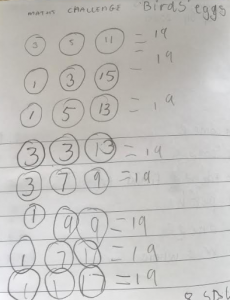 MATHS CHALLENGE 'Birds' eggs
3 5 11 = 19
1 3 15 = 19
1 5 13 = 19
3 3 13 = 19
3 7 9 = 19
1 9 9 = 19
1 7 11 = 19
1 1 17 = 19